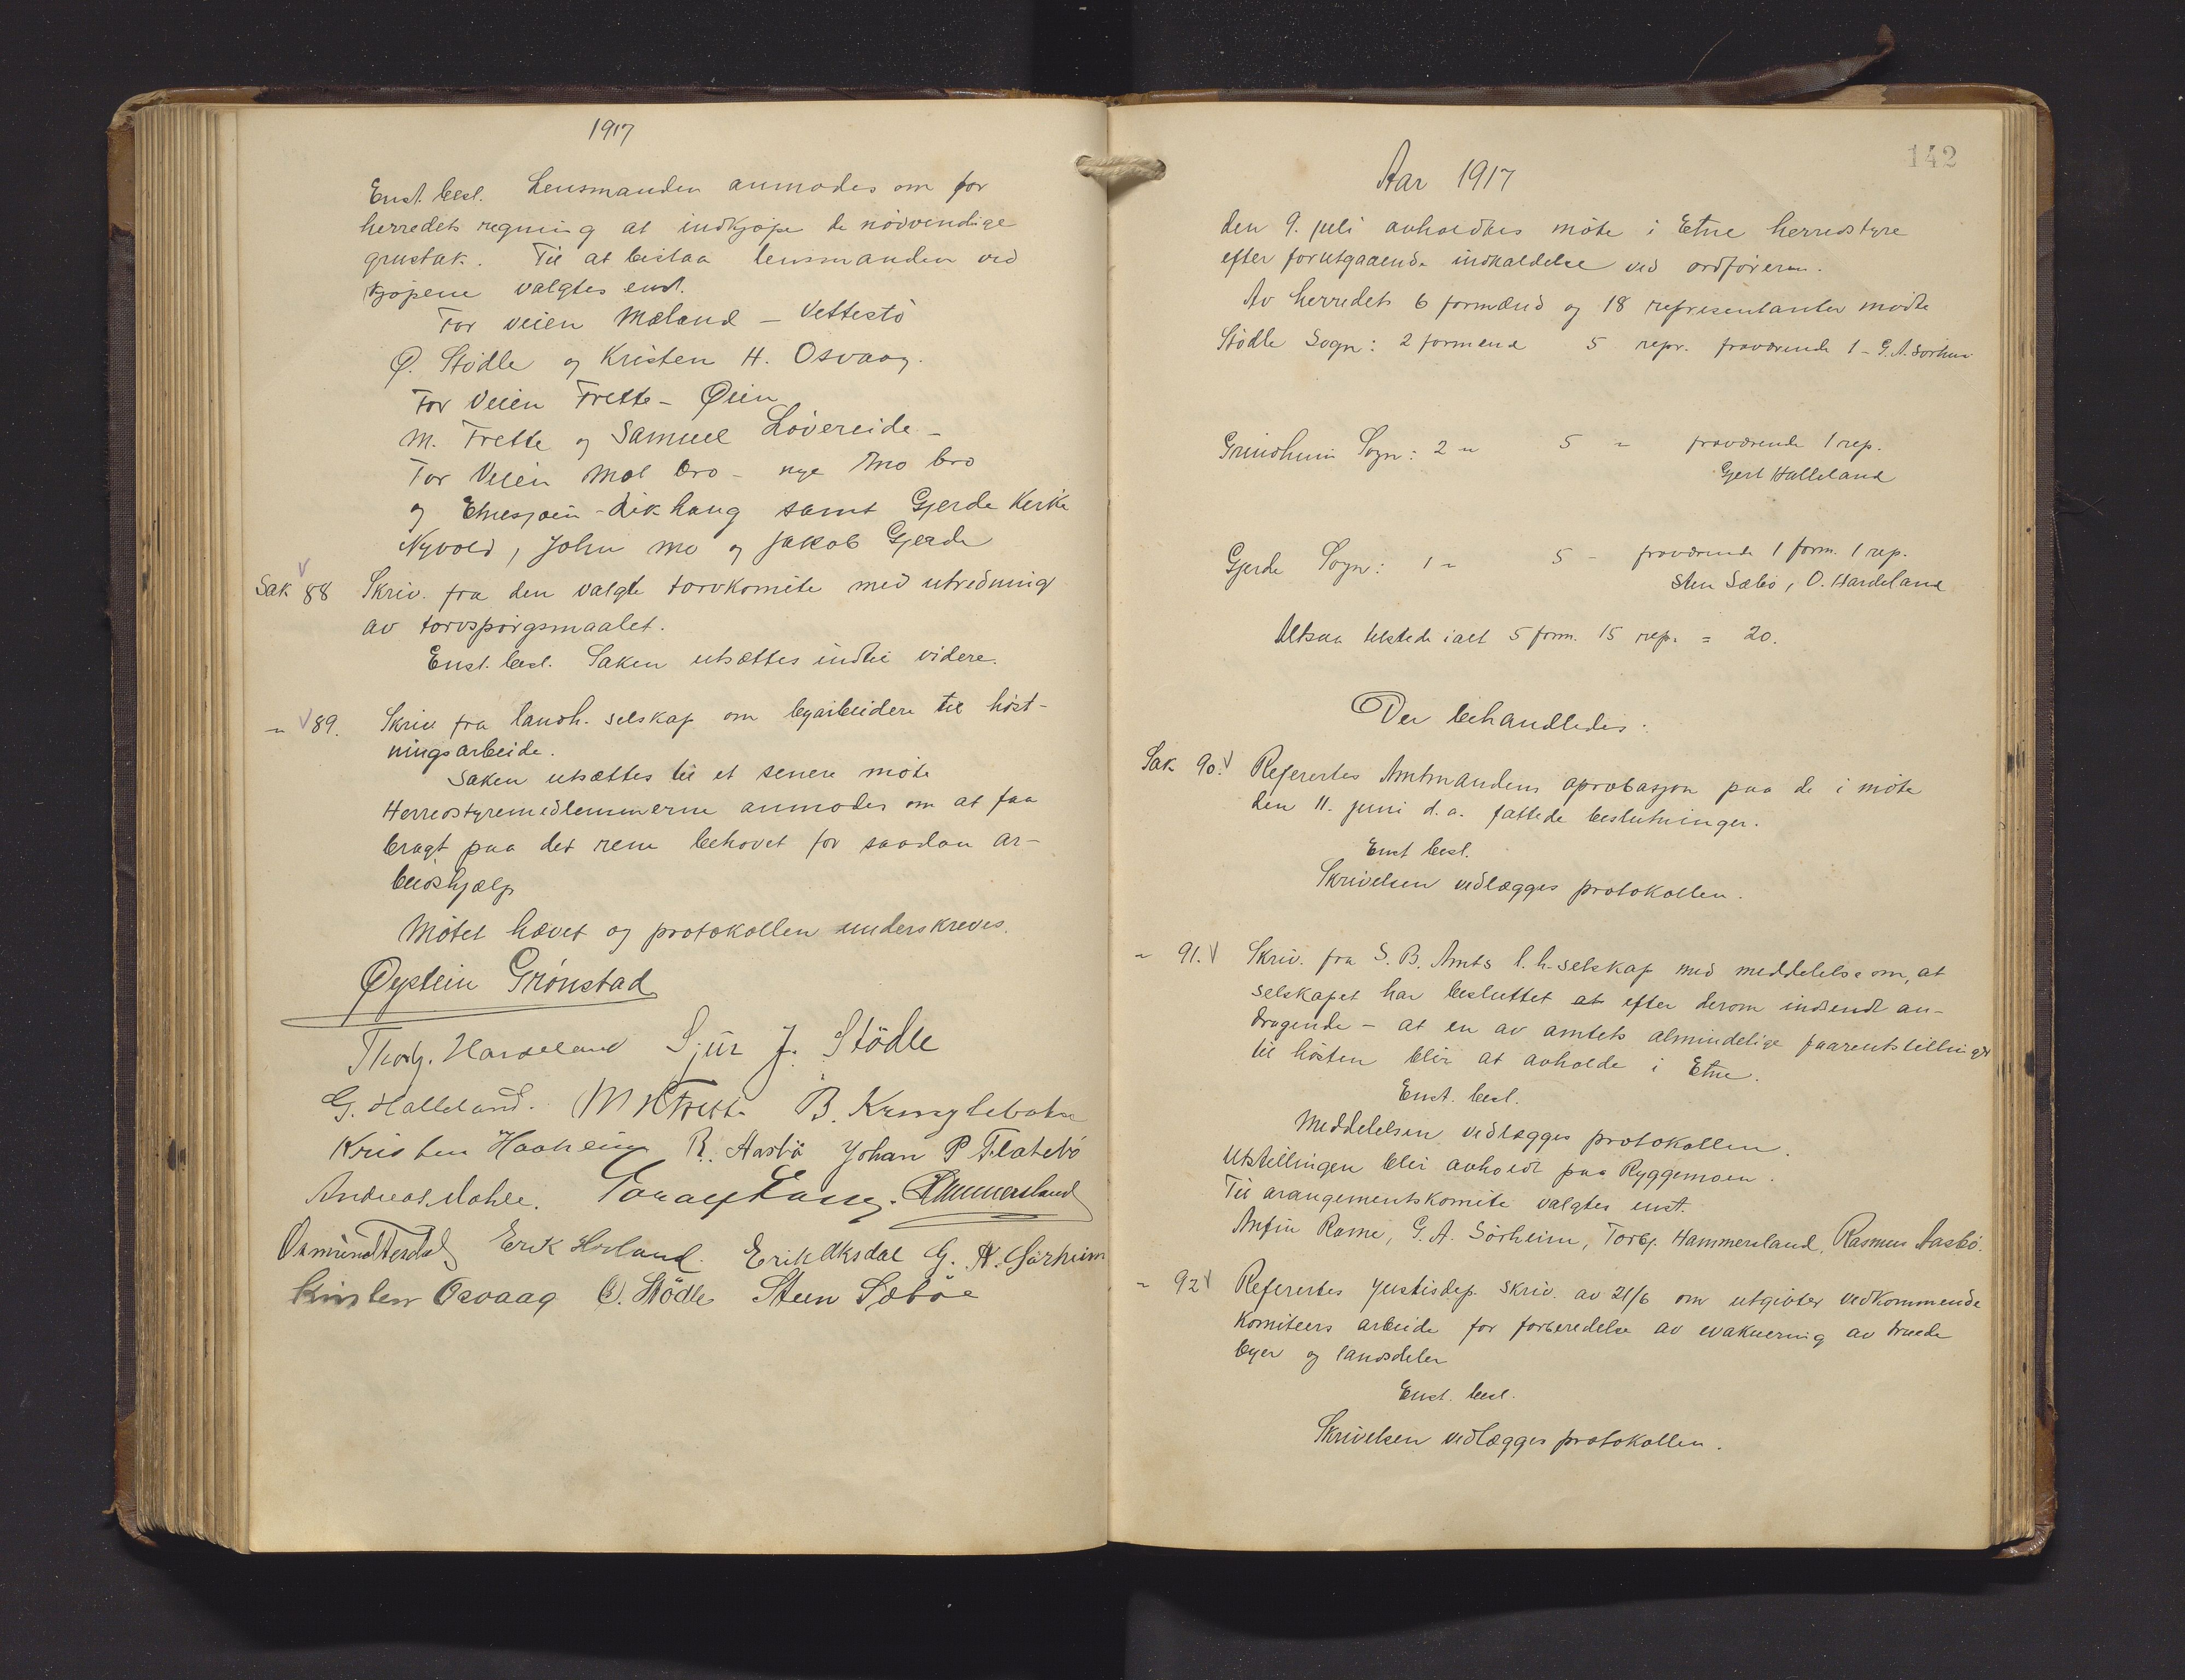 1917
Enst. besl. Lensmanden anmodes om for
herredets regning at indkjøpe de nödvendige
grustak. Til at bistaa lensmanden ved
kjøpene valgtes enst.
For veien Mæland - Vettestö
Ø. Stödle og Kristen H. Osvaag.
For Veien Frette - Øien
M. Frette og Samuel Lövereide -
For Veien Mol bro - nye Mo bro
og Etnesjøen - Likhaug samt Gjerde Kirke
Nyvold, John Mo og Jakob Gjerde
Sak 88 Skriv. fra den valgte torvkomite med utredning
av torvspörgsmaalet.
Enst. besl. Saken utsættes indtil videre.
" 89. Skriv fra landh. selskap om byarbeidere til höst-
ningsarbeide.
Saken utsættes til et senere möte
Herredstyremedlemmerne anmodes om at faa
bragt paa det rene behovet for saadan ar-
beidshjælp
Mötet hævet og protokollen underskreves.
Øystein Grönstad
Thorbj. Hardeland Sjur J. Stödle
G. Halleland. M H Frette B. Kringlebotn
Kristen Haaheim R. Aasbö Johan P Flatebö
Andreas Mæhle. Hammersland
Osmund Erik Hovland. Erik Aksdal G. A. Sörheim
Kristen Osvaag Ø. Stödle Steen Sæböe
142
Aar 1917
den 9. juli avholdtes möte i Etne herredstyre
efter forutgaaende indkaldelse ved ordföreren.
Av herredets 6 formænd og 18 representanter mödte
Stödle Sogn: 2 formend 5 repr. fraværende 1 - G. A. Sörheim
Grindheim Sogn: 2 " 5 " fraværende 1 rep.
Gjert Halleland
Gjerde Sogn: 1 " 5 - fraværende 1 form. 1 rep.
Sten Sæbö, O. Hardeland
Altsaa tilstede ialt 5 form. 15 rep. = 20.
Der behandledes:
Sak 90. Refererters Amtmandens aprobasjon paa de i möte
den 11. juni d.a. fattede beslutninger.
Enst besl.
Skrivelsen vedlægges protokollen.
" 91. Skriv. fra S. B. Amts l. h. selskap med meddelelse om, at
selskapet har besluttet at efter derom indsendt an-
dragende - at en av amtets almindelige faareutstillinger
til hösten blir at avholde i Etne.
Enst. besl.
Meddelelsen vedlægges protokollen.
Utstillingen blir avholdt paa Ryggemoen.
Til arangementskomite valgtes enst.
Anfin Rame, G. A. Sörheim, Torbj. Hammersland, Rasmus Aasbö.
" 92 Refererters Justisdep. skriv. av 21/6 om utgivter vedkommende
Komiteers arbeide for forberedelse av evakuering av truede
byer og landsdeler
Enst. besl.
Skrivelsen vedlægges protokollen.